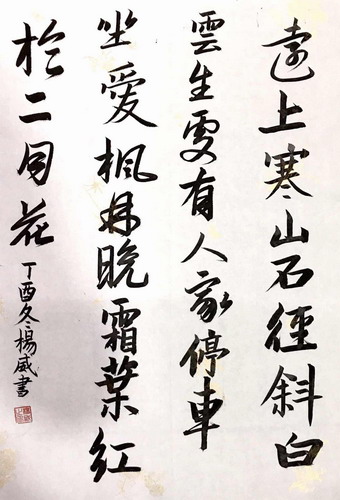 遠上寒山石徑斜白
雲生處有人家停車
坐愛楓林晚霜葉紅
於二月花
丁酉冬楊威書